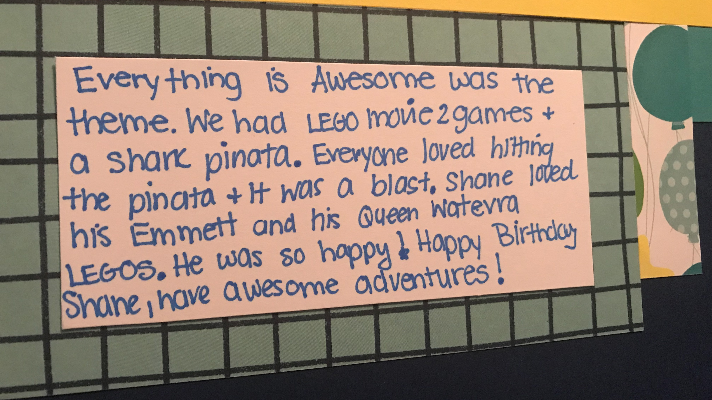 Everything is Awesome was the
theme. We had LEGO movie 2 games +
a shark pinata. Everyone loved hitting
the pinata + it was a blast. Shane loved
his Emmett and his Queen Watevra
LEGOS. He was so happy! Happy Birthday
Shane, have awesome adventures!